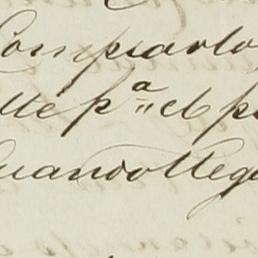 Compiarlo
lle pª el p
uando lleg